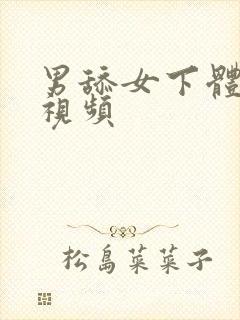 男舔女下體
視頻
松島菜菜子